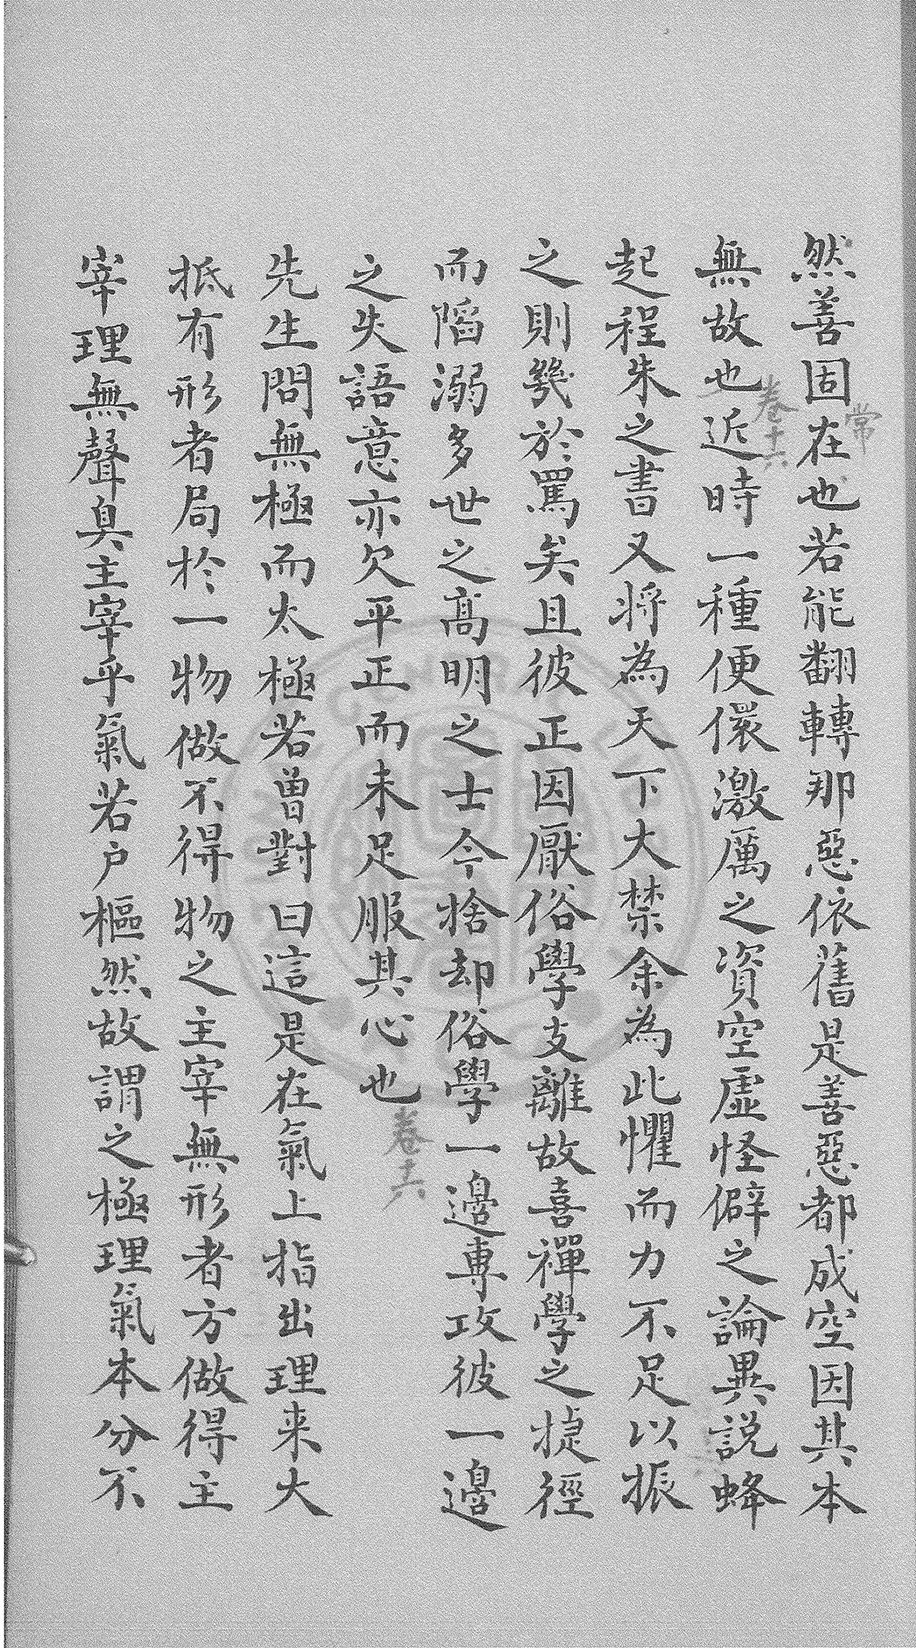 然善固在也若能翻轉那惡依舊是善惡都成空因其本
常
無故也近時一種便儇激厲之資空虛怪僻之論異説蜂
卷十六
起程朱之書又將為天下大禁余為此懼而力不足以振
之則幾於罵矣且彼正因厭俗學支離故喜禪學之捷徑
而陷溺多世之高明之士今捨却俗學一邊專攻彼一邊
之失語意亦欠平正而未足服其心也
卷十六
先生問無極而太極若曾對曰這是在氣上指出理来大
抵有形者局於一物做不得物之主宰無形者方做得主
宰理無聲臭主宰乎氣若户樞然故謂之極理氣本分不